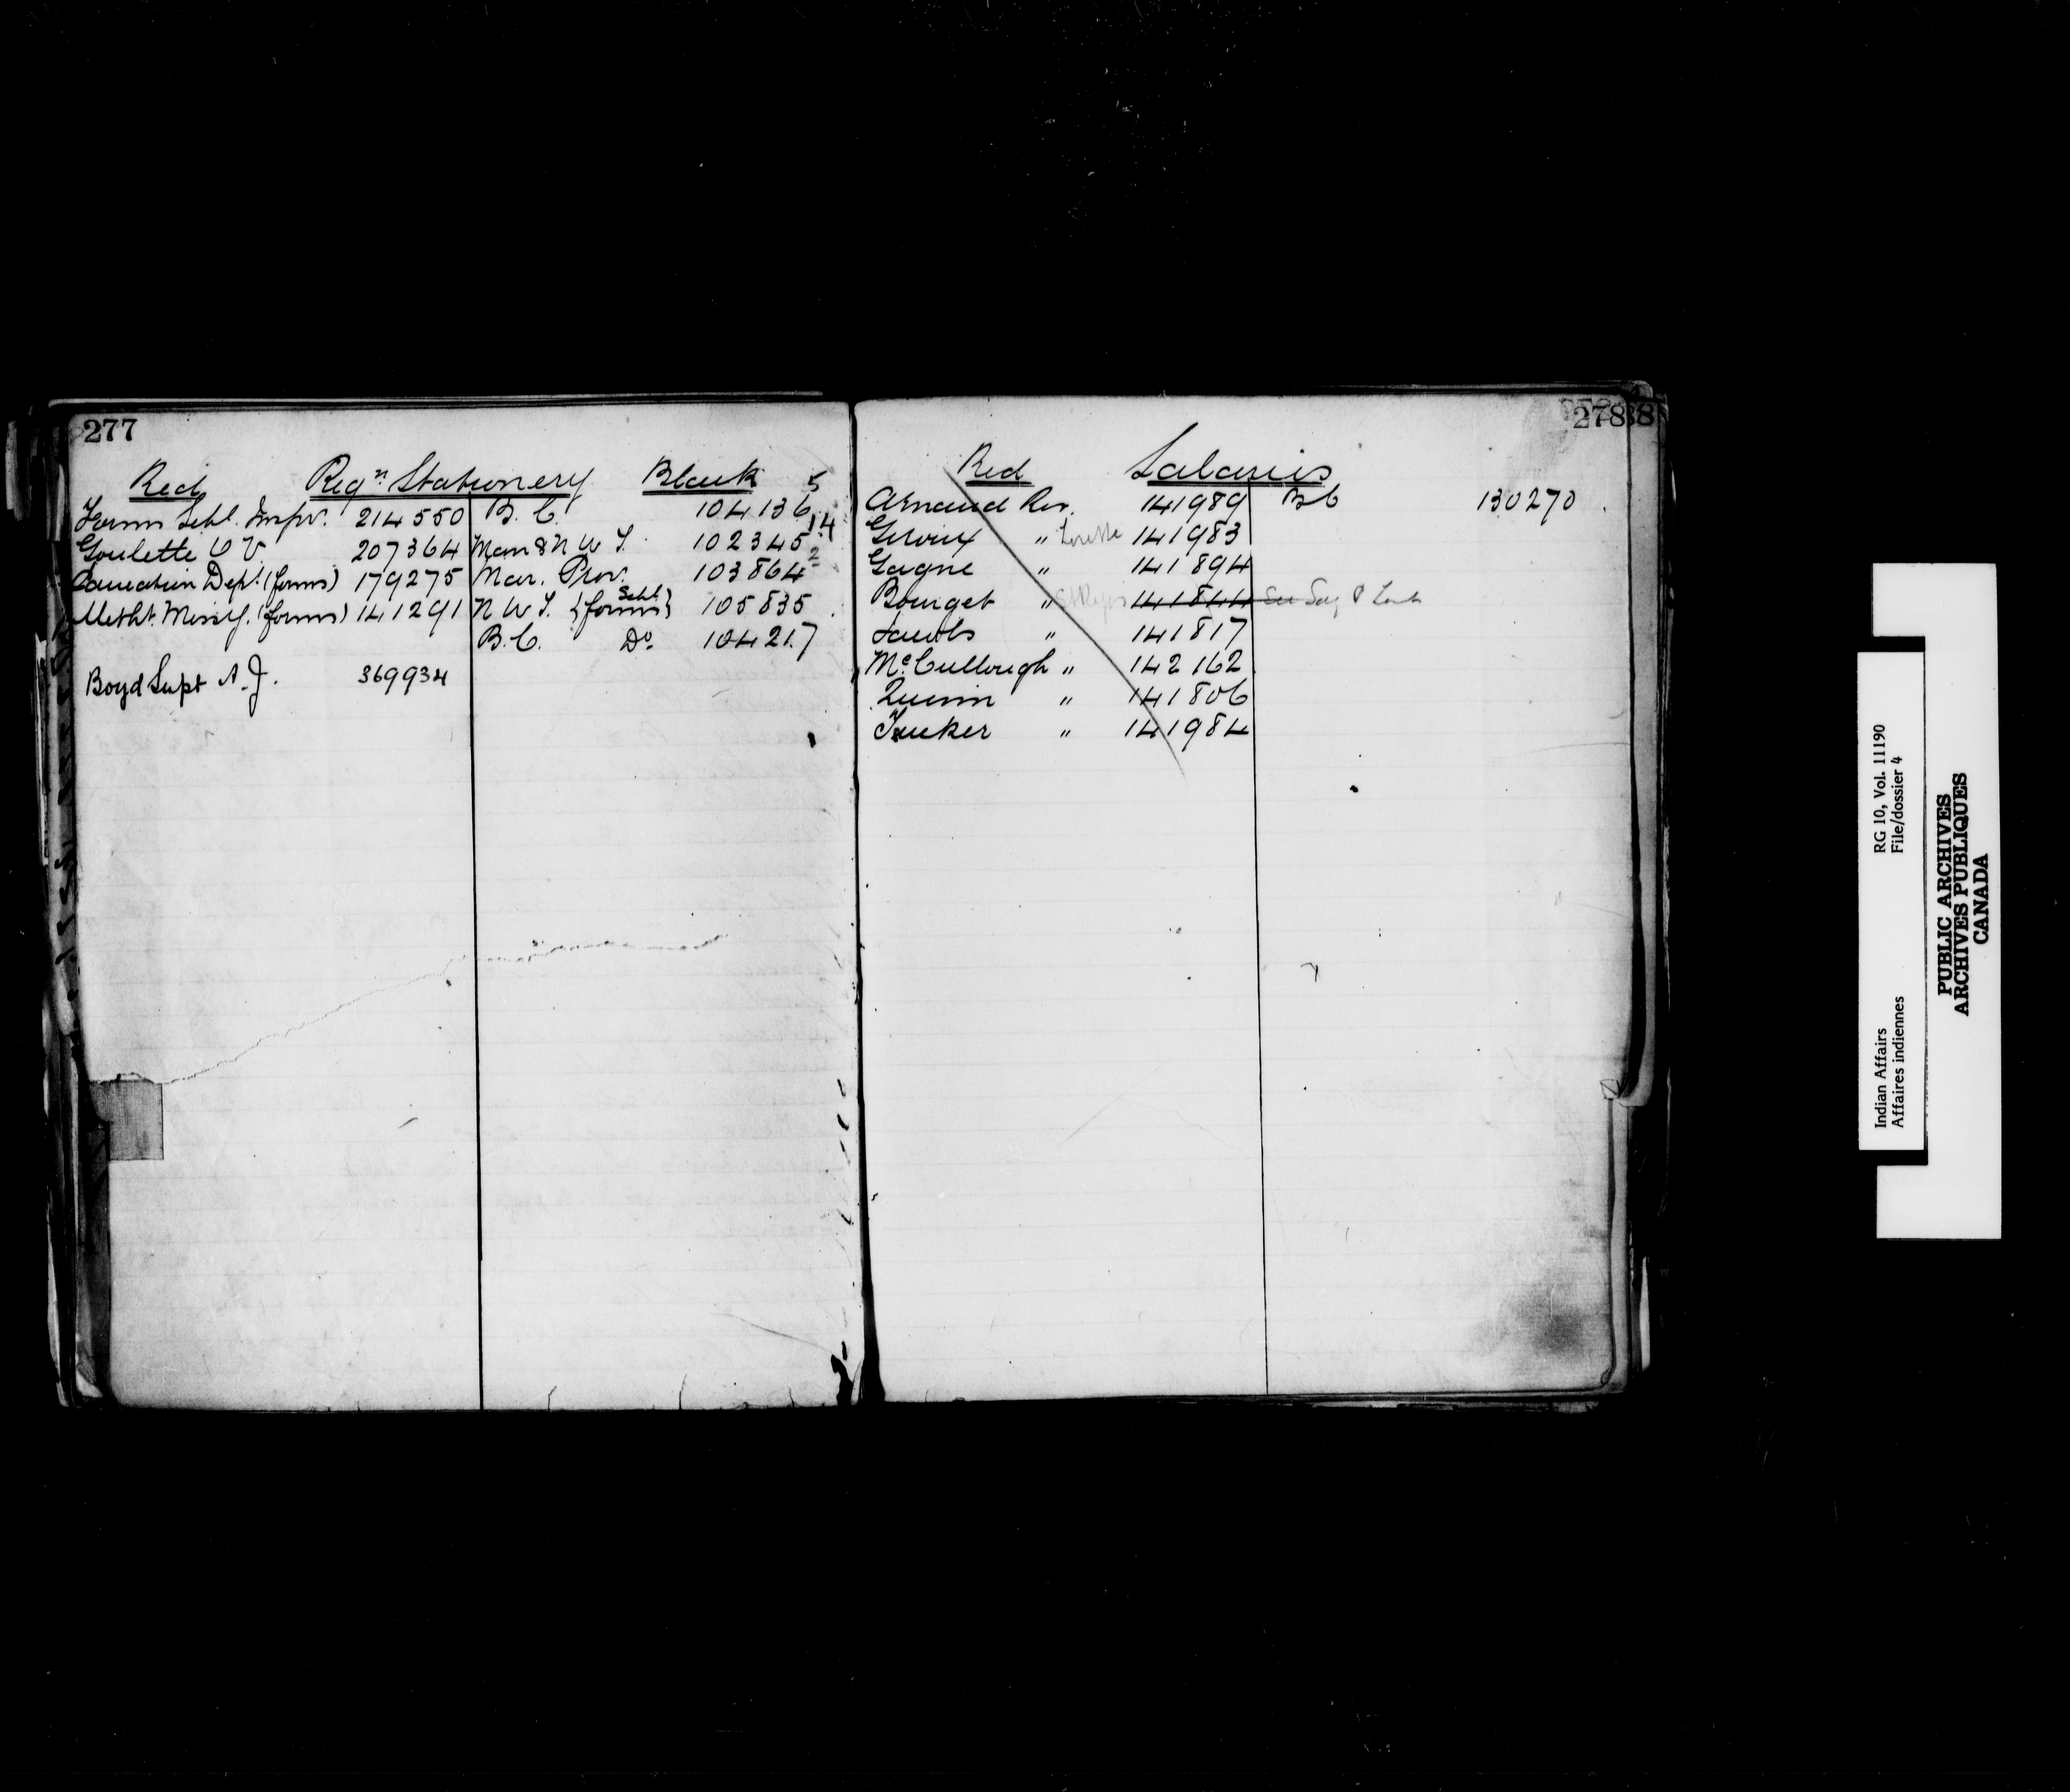 277
Red Reqn Stationery Black
Forms Schl. Inspr. 214550 B.C. 104136 5
Goulette O V 207364 Man & N W T. 102345 14
Education Dept. (forms) 179275 Mar. Prov. 103864 2
Metht. Missy. (forms) 141291 N W T. {Schl forms} 105835
B.C. Do 104217
Boyd Supt A. J. 369934
278
Red Salaries
Arnaud Rev. 141989 B C 130270
Giroux " Lorette 141983
Gagne " 141894
Bourget " St Regis 141844 See
Jacobs " 141817
McCullough " 142162
Quinn " 141806
Tucker " 141984
Indian Affairs RG 10, Vol. 11190
Affaires indiennes File/dossier 4
PUBLIC ARCHIVES
ARCHIVES PUBLIQUES
CANADA